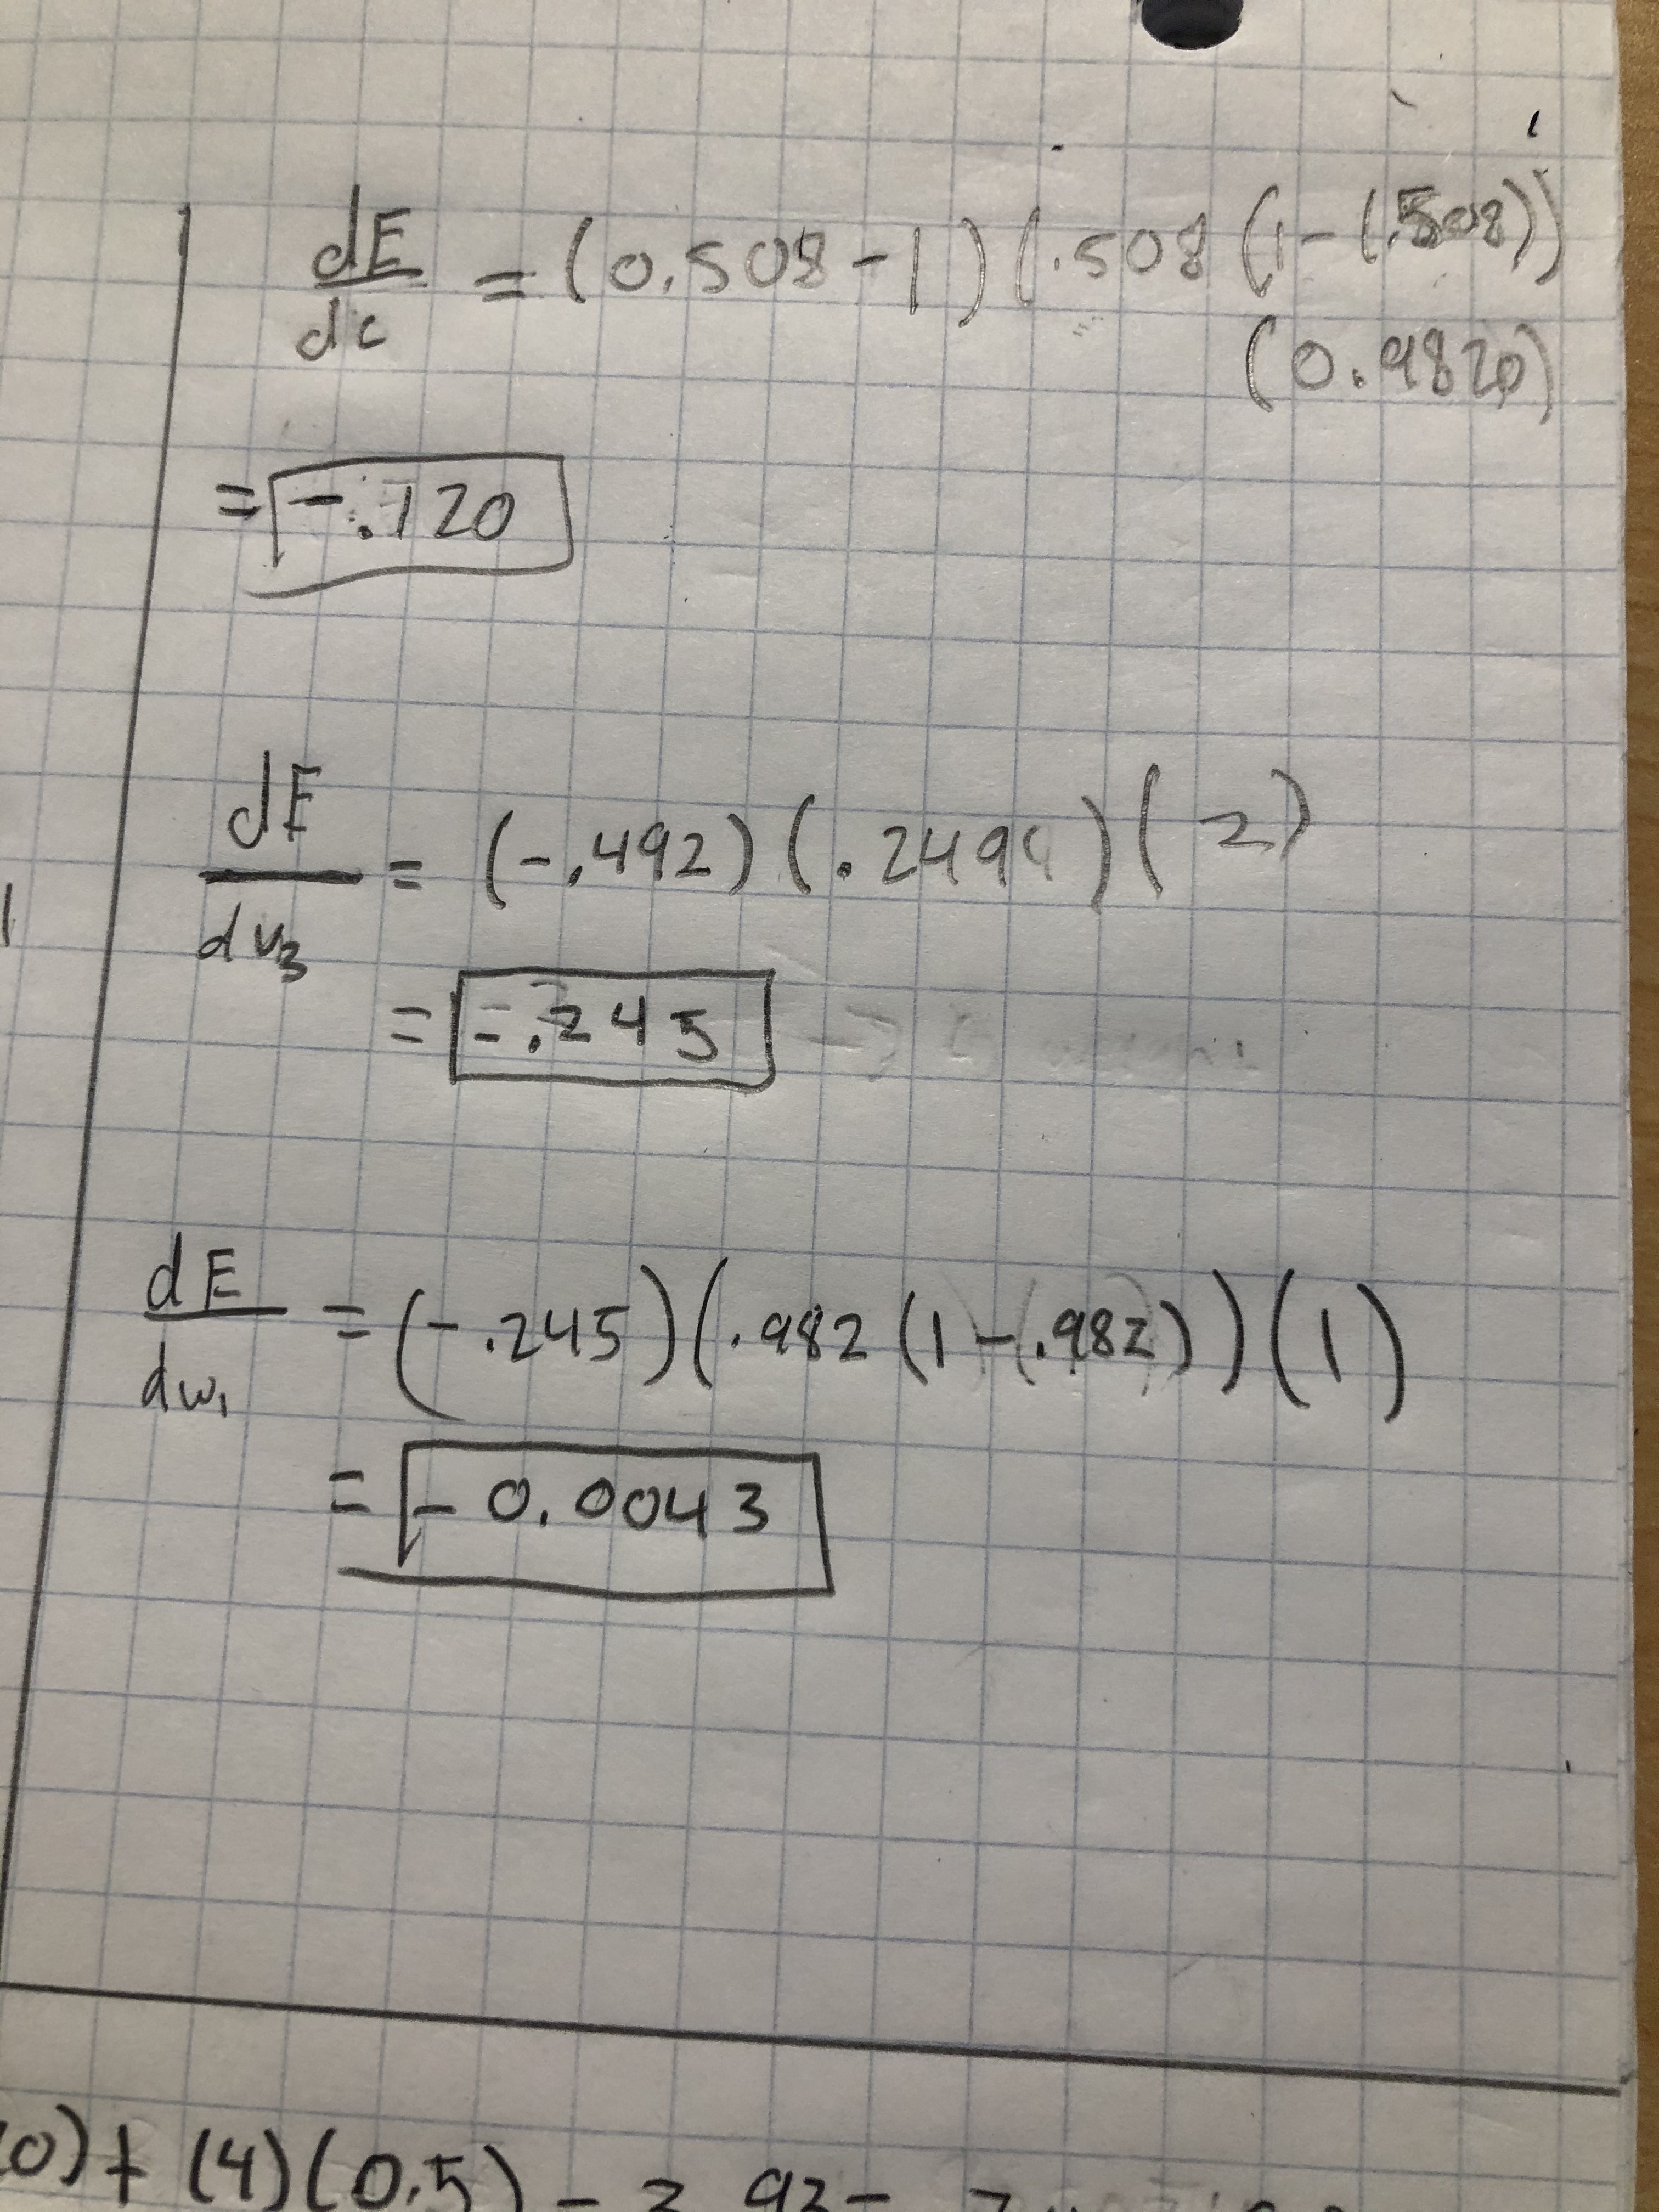 dE/dc = (0.508 - 1)(.508(1 - (.508))
(0.9820)
= -.120
dE/dv₃ = (-.492)(.2499)(2)
= -.245
dE/dw₁ = (-.245)(.982(1 - (.982))(1)
= -0.0043
0) + (4)(0.5)